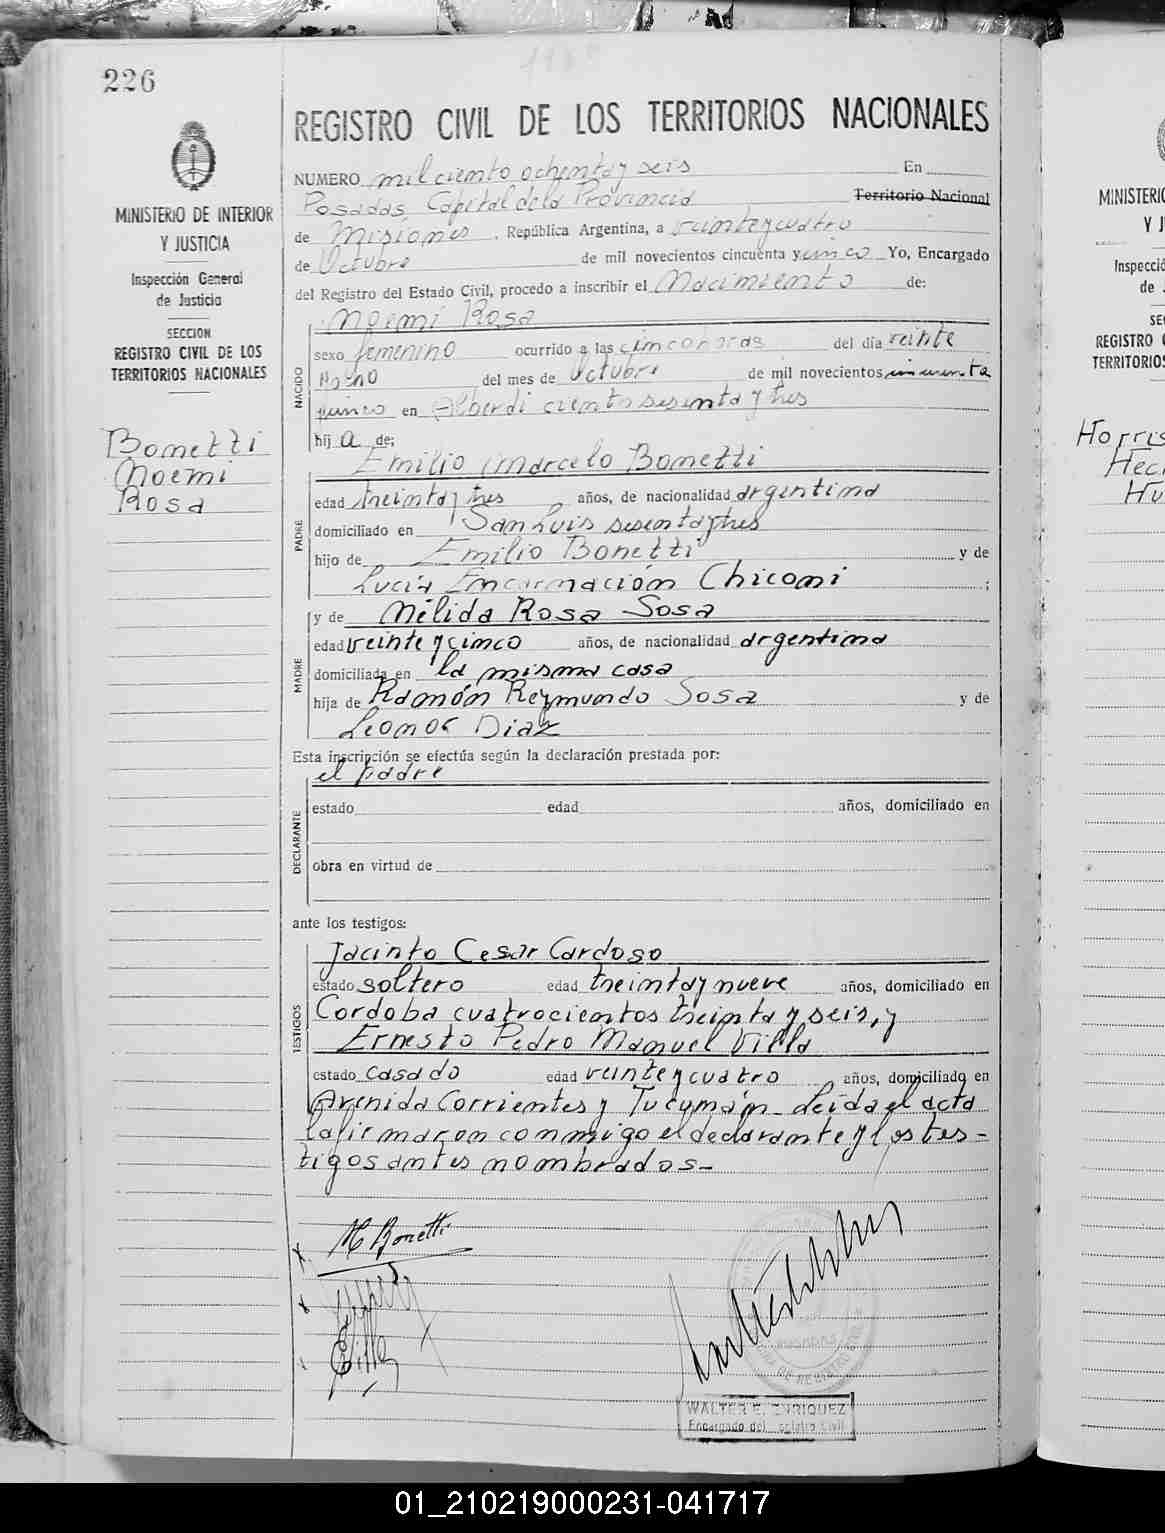 226
MINISTERIO DE INTERIOR
Y JUSTICIA
Inspección General
de Justicia
SECCION
REGISTRO CIVIL DE LOS
TERRITORIOS NACIONALES
Bonetti
Noemi
Rosa
REGISTRO CIVIL DE LOS TERRITORIOS NACIONALES
NUMERO mil ciento ochenta y seis En
Posadas, Capital de la Provincia Territorio Nacional
de Misiones, República Argentina, a veinte y cuatro
de Octubre de mil novecientos cincuenta y cinco Yo, Encargado
del Registro del Estado Civil, procedo a inscribir el Nacimiento de:
NACIDO
Noemi Rosa
sexo femenino ocurrido a las cinco horas del día veinte
del mes de Octubre de mil novecientos cincuenta
en Alberdi ciento sesenta y tres
hij a de:
PADRE
Emilio Marcelo Bonetti
edad treinta y tres años, de nacionalidad argentina
domiciliado en San Luis sesenta y tres
hijo de Emilio Bonetti y de
Lucía Encarnación Chiconi ;
MADRE
y de Nélida Rosa Sosa
edad veinte y cinco años, de nacionalidad argentina
domiciliada en la misma casa
hija de Ramón Reymundo Sosa y de
Leonor Diaz
Esta inscripción se efectúa según la declaración prestada por:
el padre
DECLARANTE
estado edad años, domiciliado en
obra en virtud de
ante los testigos:
TESTIGOS
Jacinto Cesar Cardoso
estado soltero edad treinta y nueve años, domiciliado en
Cordoba cuatrocientos treinta y seis, y
Ernesto Pedro Manuel Villa
estado casado edad veinte y cuatro años, domiciliado en
Avenida Corrientes y Tucumán. Leida el acta
la firmaron conmigo el declarante y los tes-
tigos antes nombrados-
M Bonetti
EVilla
WALTER E. ENRIQUEZ
Encargado del Registro Civil
MINISTERIO
Y J
Inspecció
de
SE
REGISTRO C
TERRITORIOS
Horris
Hec
Hu
01_210219000231-041717